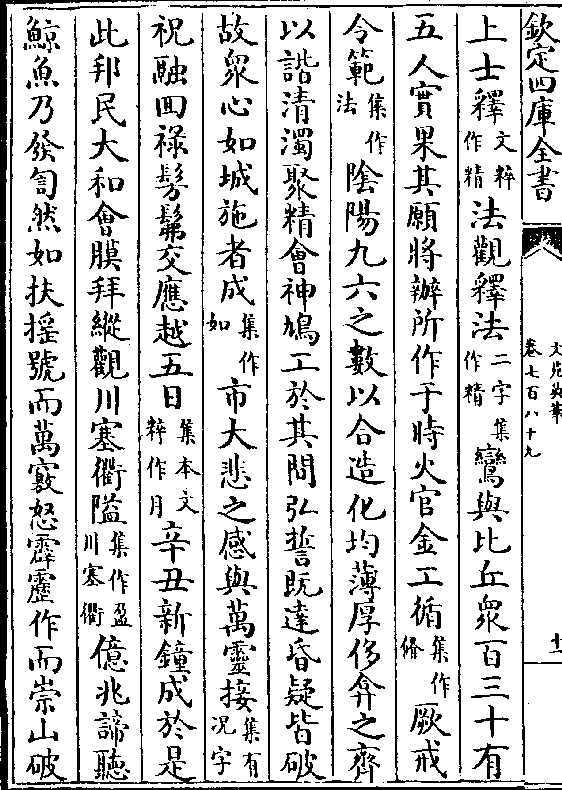 欽定四庫全書
文苑英華
卷七百八十九
十一
上士釋文粹作精法觀釋法二字集作精鸞與比丘衆百三十有
五人實果其願將辦所作于時火官金工循集作脩厥戒
令範集作法陰陽九六之數以合造化均薄厚侈弇之齊
以諧清濁聚精會神鳩工於其間弘誓既達昏疑皆破
故衆心如城施者成集作如市大悲之感與萬靈接集有况字
祝融回祿髣髴交應越五日集本文粹作月辛丑新鐘成於是
此邦民大和會膜拜縱觀川塞衢隘集作盈川塞衢億兆諦聽
鯨魚乃發訇然如扶搖號而萬竅怒霹靂作而崇山破